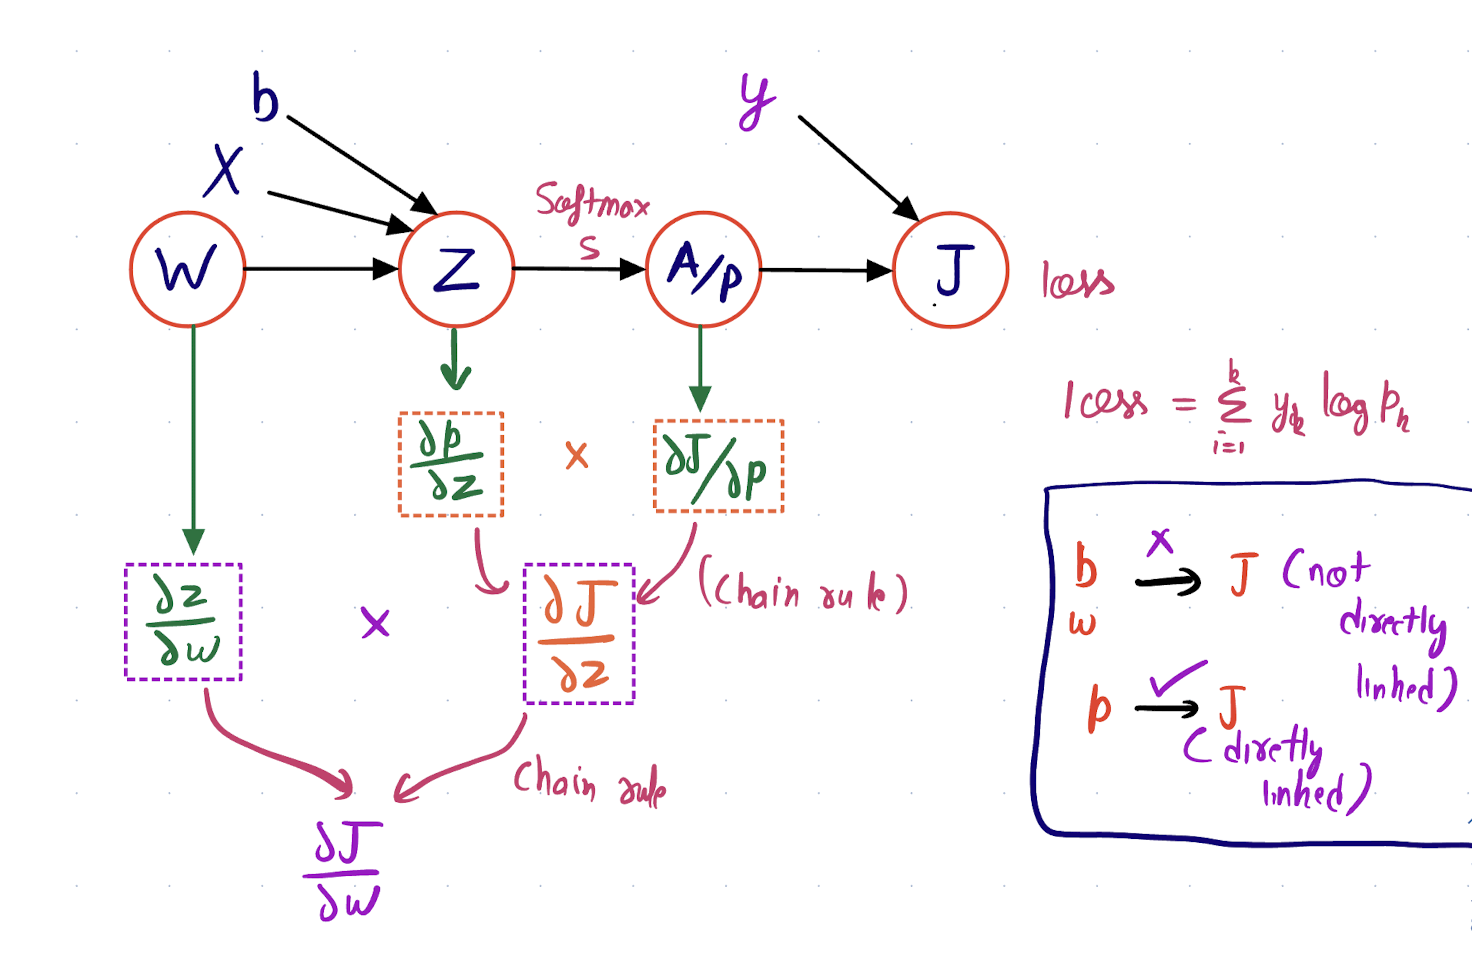 b
y
X
Softmax
s
W
Z
A/p
J
loss
loss = \sum_{i=1}^{k} y_k log p_k
∂p/∂z
x
∂J/∂p
(Chain rule)
∂z/∂w
x
∂J/∂z
Chain rule
∂J/∂w
b x → J (not
directly
linked)
w
p ✓ → J
(diretly
linked)